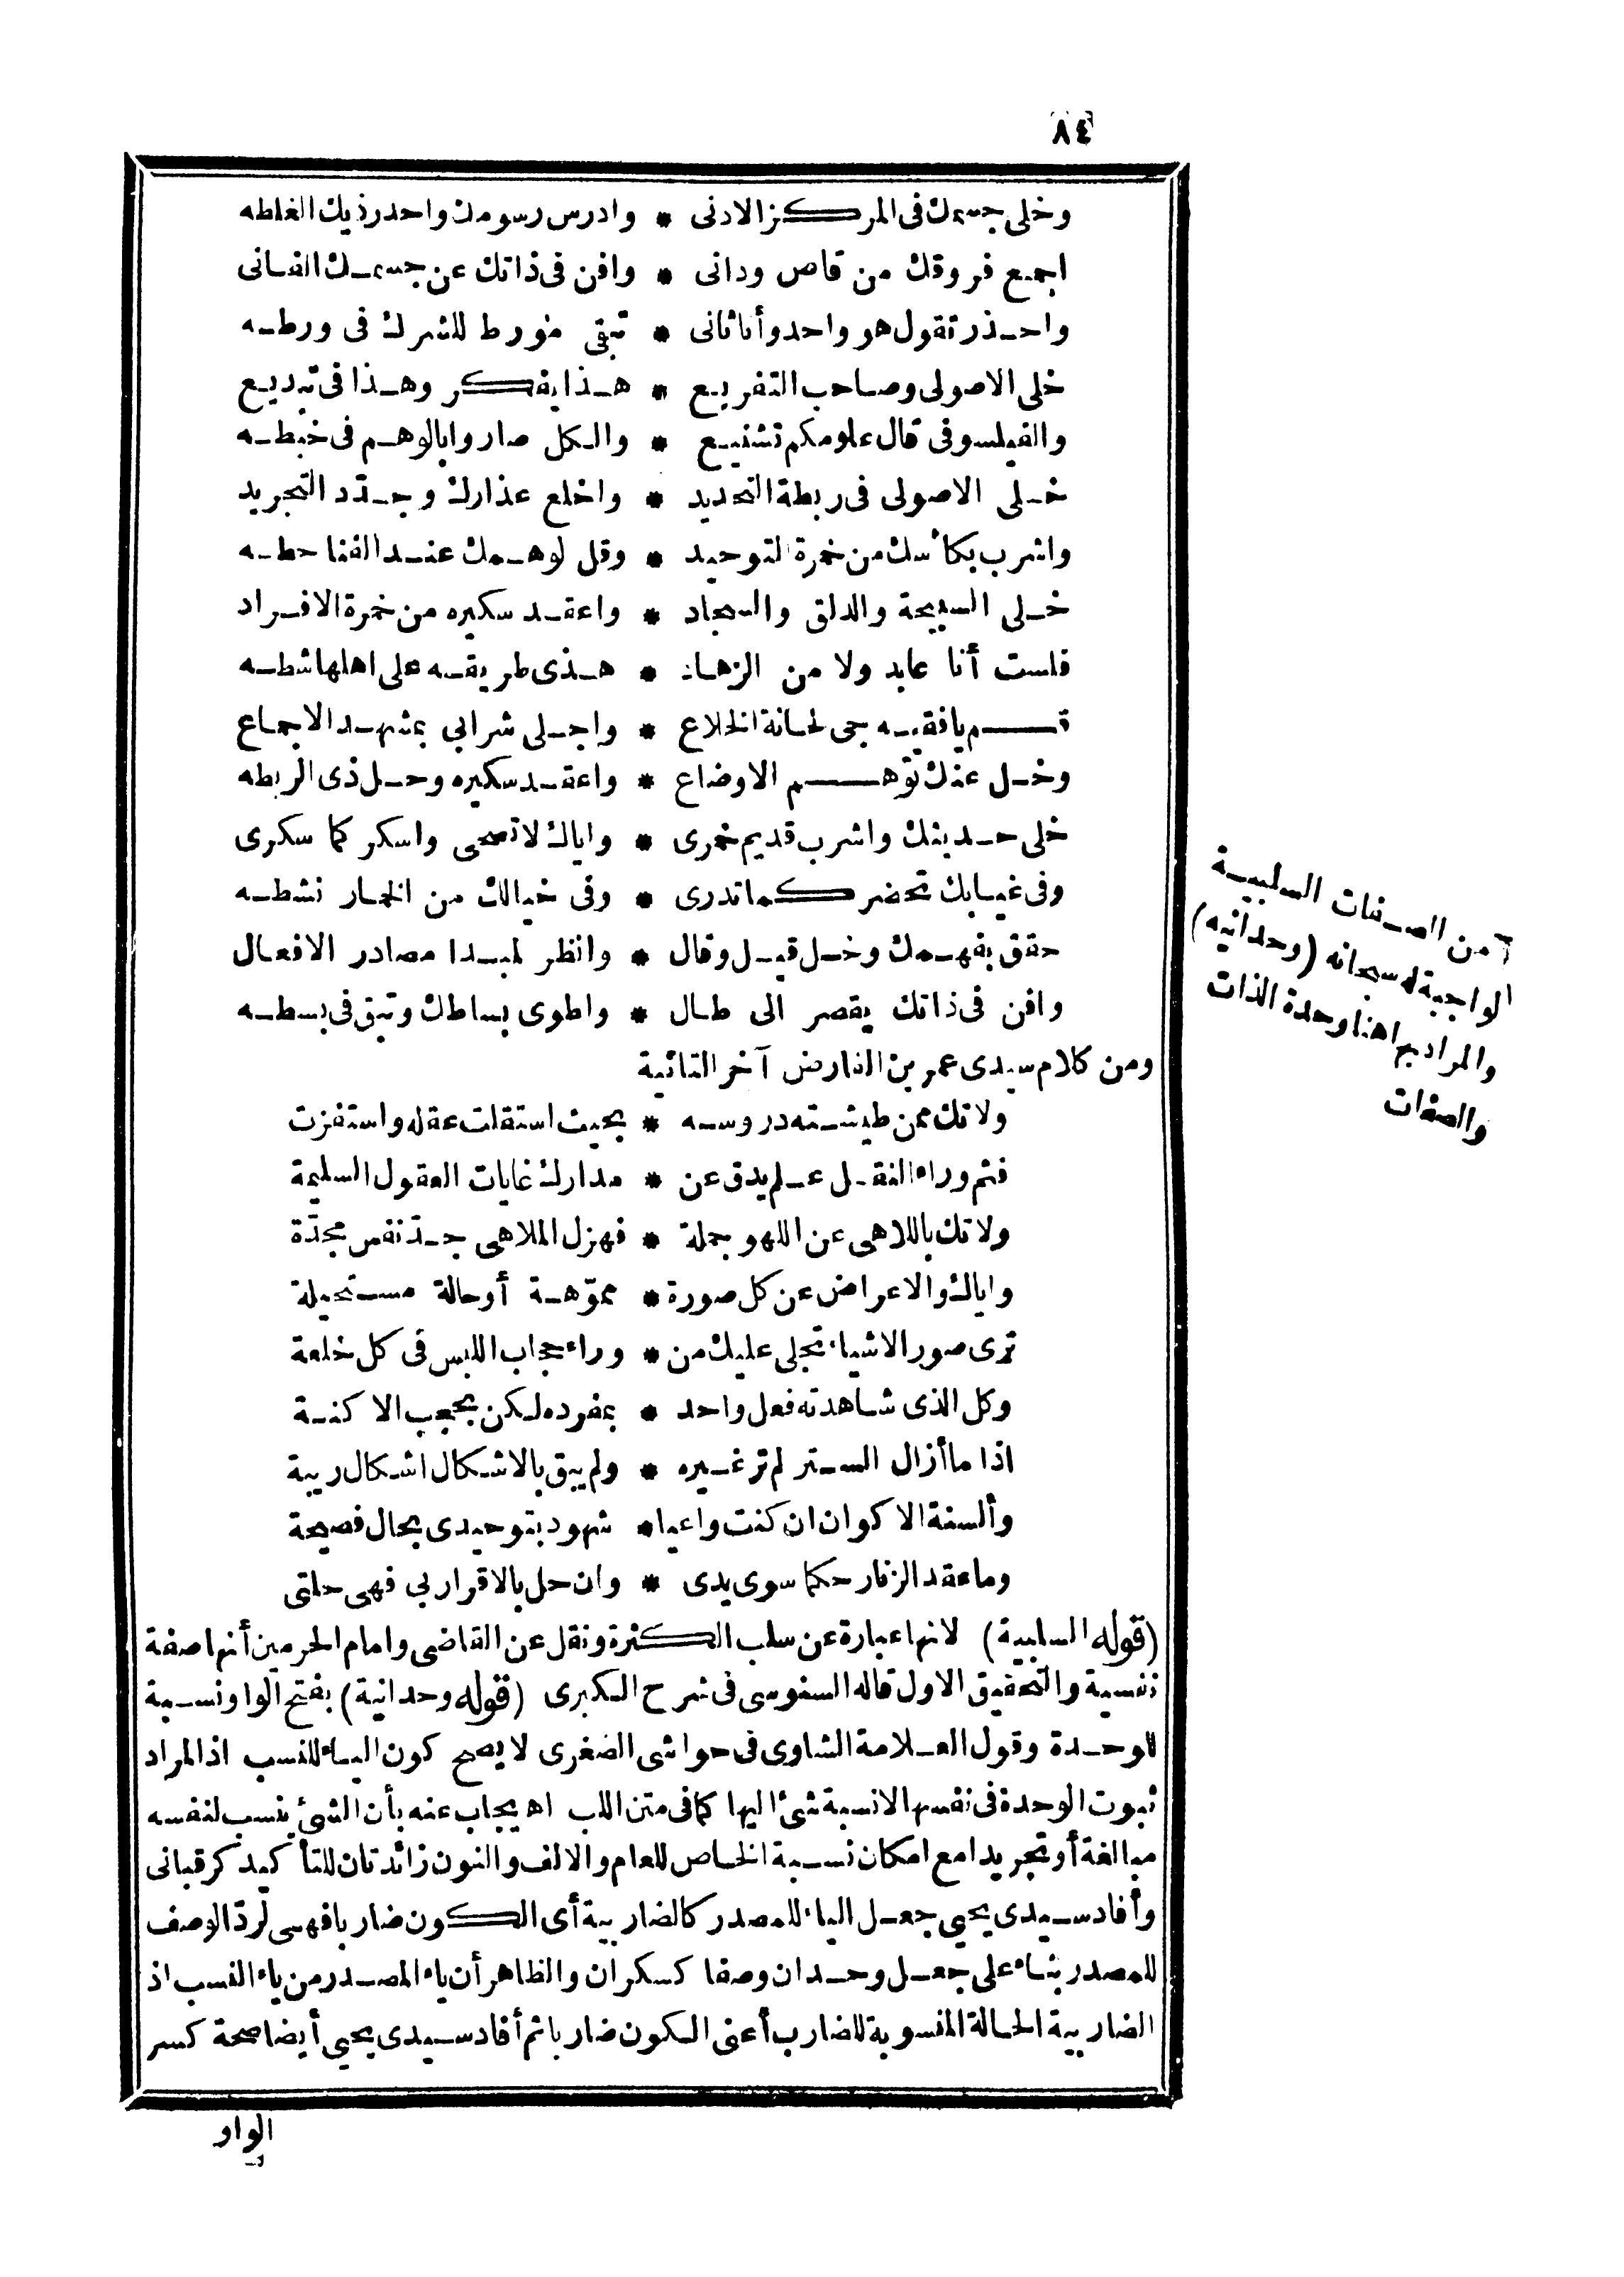 ٨٤
وخلى جسمك فى المركز الادنى * وادرس رسومك واحدر ذيك الغلطه
اجمع فروقك من قاص ودانى * وافن فى ذاتك عن جسمك الفانى
واحذر تقول هو واحد وأنا ثانى * تبقى مورط للشرك فى ورطه
خلى الاصولى وصاحب التفريع * هذا يفكر وهذا فى تبديع
والفيلسوفى قال علومكم تشنيع * والكل صاروا بالوهم فى خبطه
خلى الاصولى فى ربطة التحديد * واخلع عذارك وجدّد التجريد
واشرب بكأسك من خمرة التوحيد * وقل لوهمك عند الفنا حطه
خلى السبيحة والدلق والسجاد * واعقد سكيره من خمرة الافراد
فلست أنا عابد ولا من الزهاد * هذى طريقه على اهلها شطه
قم يا فقيه جى لحانة الخلاع * واجلى شرابي بمشهد الاجماع
وخل عنك توّهم الاوضاع * واعقد سكيره وحل ذى الربطه
خلى حديثك واشرب قديم خمرى * واياك لا تصحى واسكر كما سكرى
وفى غيابك تحضر كما تدرى * وفى خيالك من الخمار نشطه
حقق بفهمك وخل قيل وقال * وانظر لمبدا مصادر الافعال
وافن فى ذاتك يقصر الى طال * واطوى بساطك وتبق فى بسطه
ومن كلام سيدى عمر بن الفارض آخر التائية
ولا تك ممن طيشته دروسه * بحيث استقلت عقله واستفزت
فثم وراء النقل علم يدق عن * مدارك غايات العقول السليمة
ولا تك باللاهى عن اللهو جملة * فهزل الملاهى جدّ نفس مجدّة
واياك والاعراض عن كل صورة * مموّهة أو حالة مستحيلة
ترى صور الاشياء تجلى عليك من * وراء حجاب اللبس فى كل خلعة
وكل الذى شاهدته فعل واحد * بمفرده لكن بحجب الاكنة
اذا ما أزال الستر لم تر غيره * ولم يبق بالاشكال اشكال ريبة
وألسنة الاكوان ان كنت واعيا * شهود بتوحيدى بحال فصيحة
وما عقد الزنار حكما سوى يدى * وان حل بالاقرار بي فهى حلتى
(قوله السلبية) لانها عبارة عن سلب الكثرة ونقل عن القاضى وامام الحرمين أنها صفة
نفسية والتحقيق الاول قاله السنوسى فى شرح الكبرى (قوله وحدانية) بفتح الواو نسبة
للوحدة وقول العلامة الشاوى فى حواشى الصغرى لا يصح كون الياء للنسب اذ المراد
ثبوت الوحدة فى نفسها لا نسبة شئ اليها كما فى متن اللب اه يجاب عنه بأن الشئ ينسب لنفسه
مبالغة أو تجريدا مع امكان نسبة الخاص للعام والالف والنون زائدتان للتأكيد كرقبانى
وأفاد سيدى يحيى جعل الياء للمصدر كالضاربية أى الكون ضاربا فهى لردّ الوصف
للمصدر بناء على جعل وحدان وصفا كسكران والظاهر أن ياء المصدر من ياء النسب اذ
الضاربية الحالة المنسوبة للضارب أعنى الكون ضاربا ثم أفاد سيدى يحيى أيضا صحة كسر
الواو
من الصفات السلبية
الواجبة له سبحانه (وحدانيه)
والمراد بها هنا وحدة الذات
والصفات